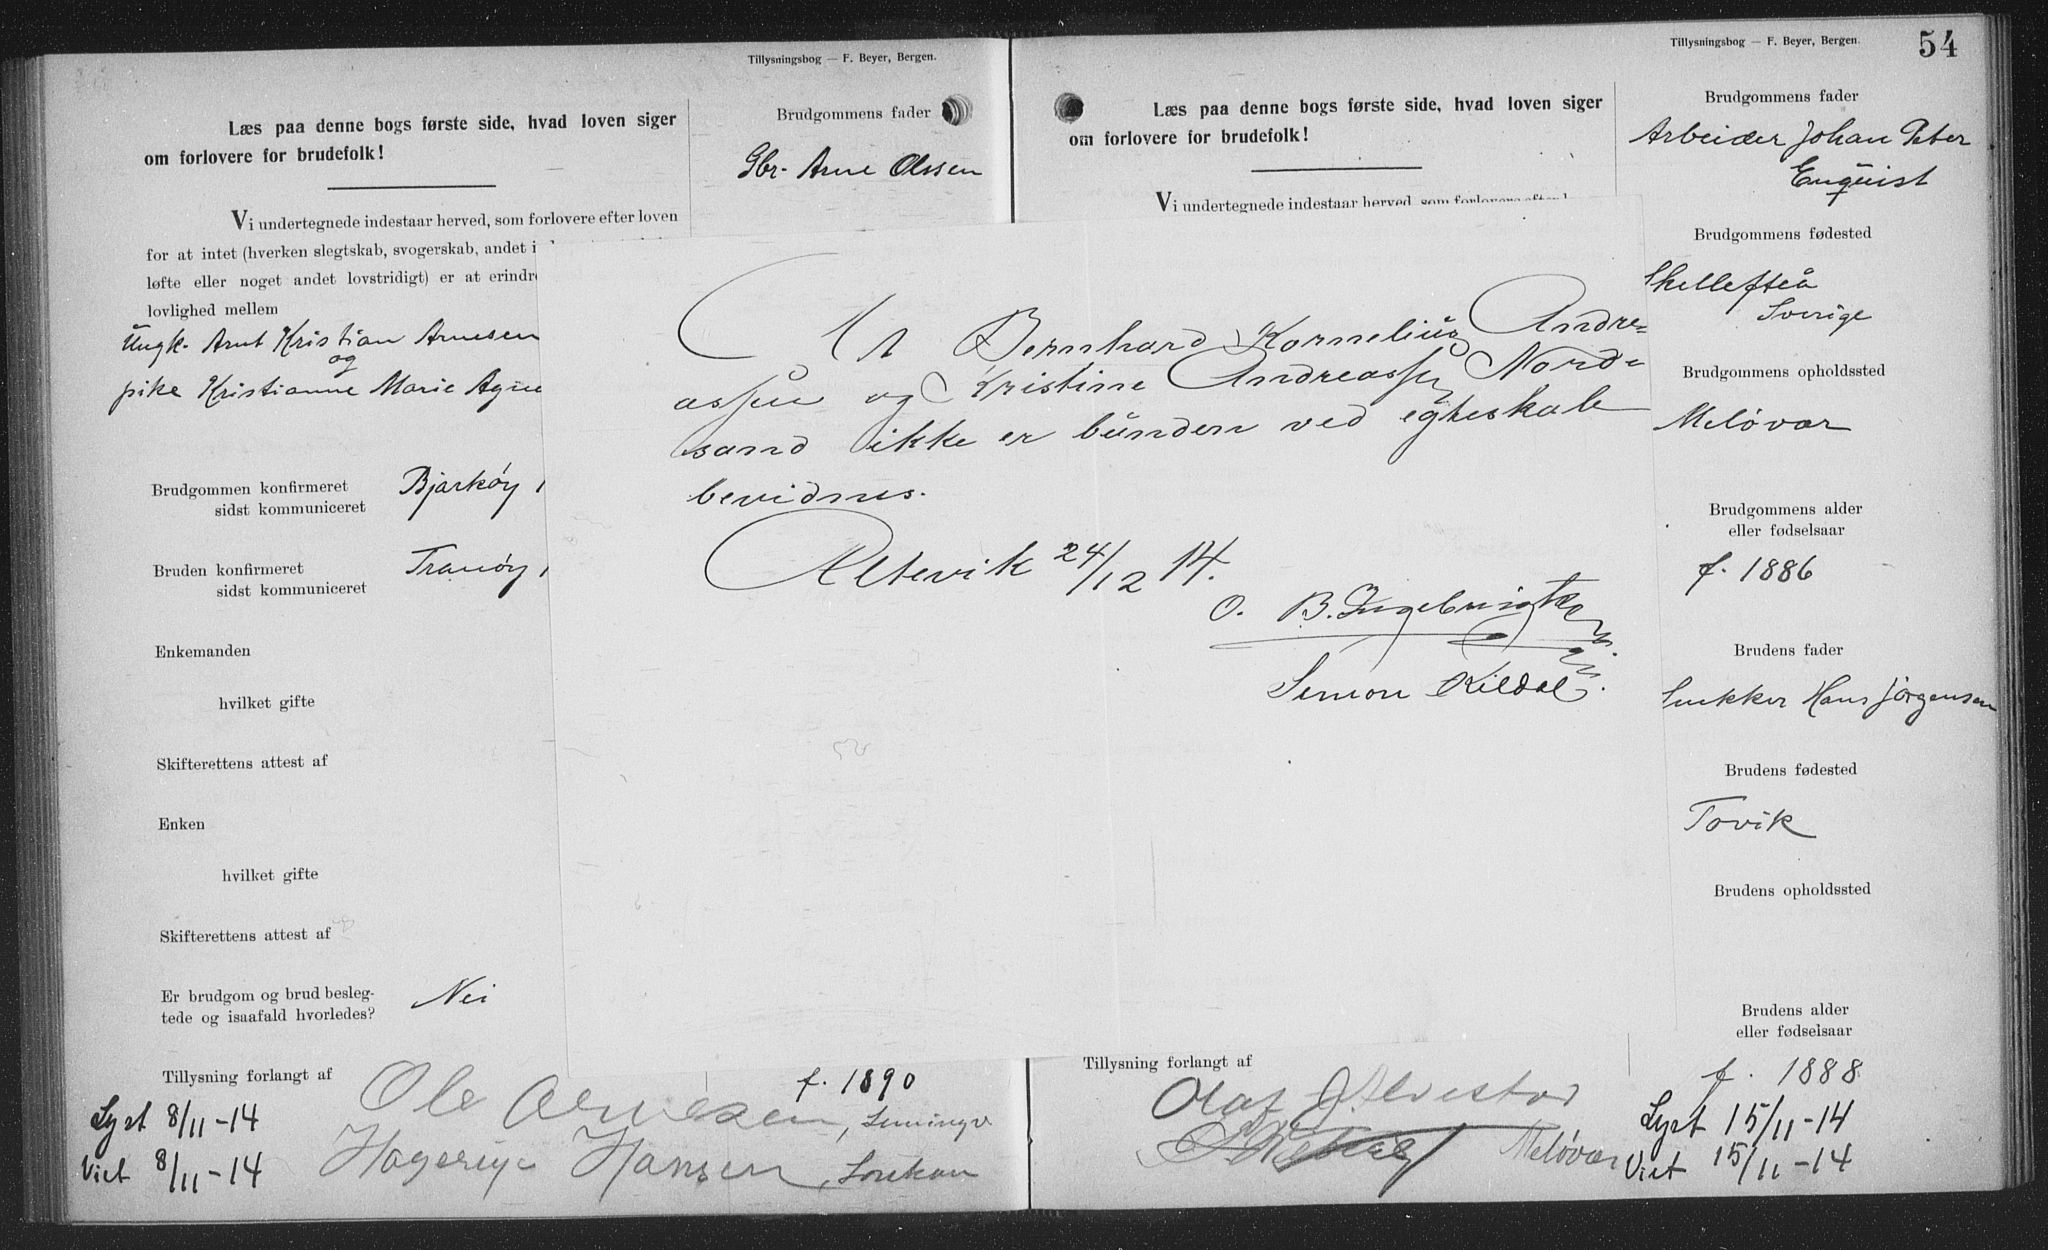 Tillysningsbog — F. Beyer, Bergen.
Læs paa denne bogs første side, hvad loven siger
om forlovere for brudefolk!
Brudgommens fader
Gbr. Arne Olssen
Vi undertegnede indestaar herved, som forlovere efter loven
for at intet (hverken slegtskab, svogerskab, andet
løfte eller noget andet lovstridigt) er at erindre
lovlighed mellem
Ungk. Arnt Kristian Arnesen
og
pike Kristianne Marie
Brudgommen konfirmeret
sidst kommuniceret
Bjarkøy
Bruden konfirmeret
sidst kommuniceret
Tranøy
Enkemanden
hvilket gifte
Skifterettens attest af
Enken
hvilket gifte
Skifterettens attest af
Er brudgom og brud besleg-
tede og isaafald hvorledes?
Nei
Tillysning forlangt af
f. 1890
Ole Arnesen,
Hansen,
Lyst 8/11-14
Viet 8/11-14
At Bernhard Kornelius Andre=
assen og Kristine Andreassen Nord=
sand ikke er bunden ved egteskab
bevidnes.
Altevik 24/12 14.
O. B. Ingebrigtsen
Simon Kildal
Tillysningsbog — F. Beyer, Bergen.
54
Læs paa denne bogs første side, hvad loven siger
om forlovere for brudefolk!
Vi undertegnede indestaar herved, som forlovere efter
Brudgommens fader
Arbeider Johan Peter
Enquist
Brudgommens fødested
Skellefteå
Sverige
Brudgommens opholdssted
Meløvær
Brudgommens alder
eller fødselsaar
f. 1886
Brudens fader
Snekker Hans Jørgensen
Brudens fødested
Tovik
Brudens opholdssted
Brudens alder
eller fødselsaar
f. 1888
Tillysning forlangt af
Olaf
Meløvær
Lyst 15/11-14
Viet 15/11-14